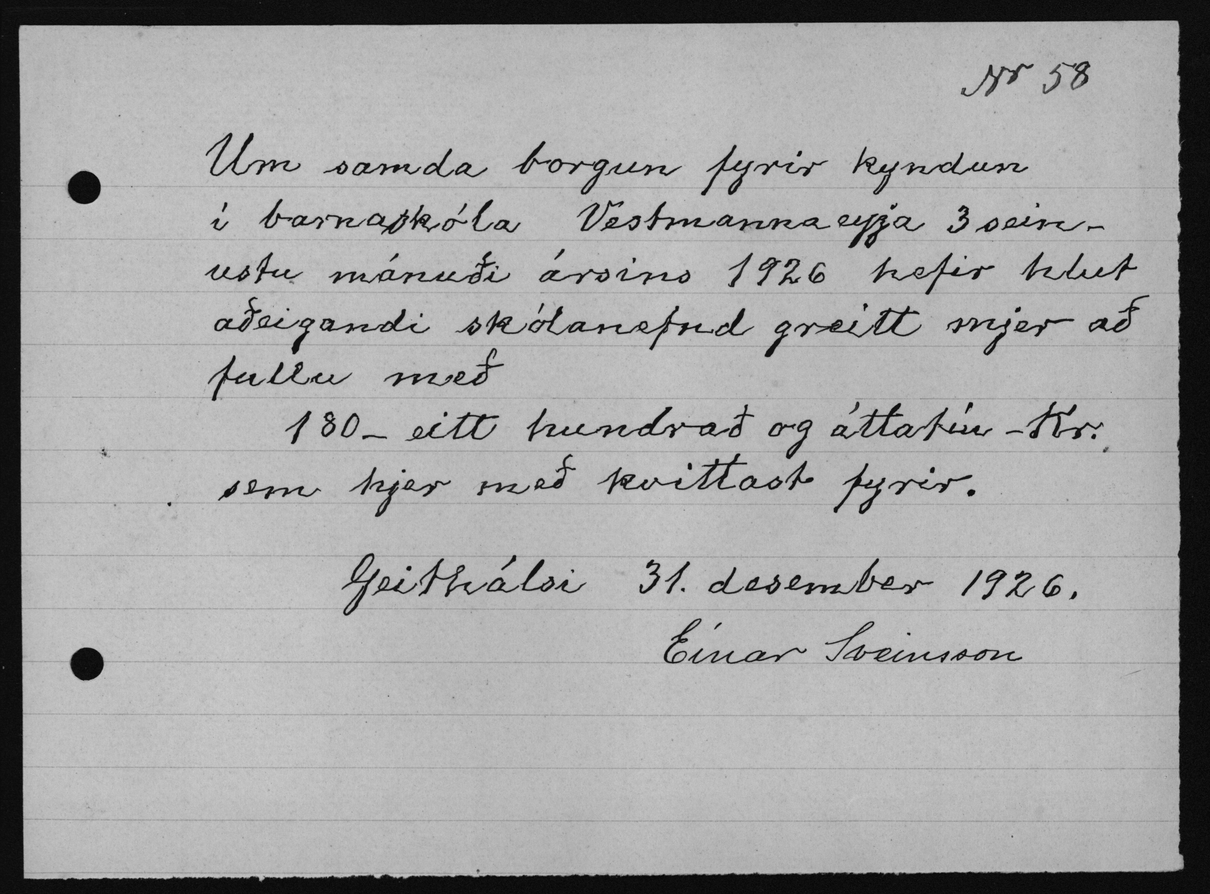 Nr 58
Um samda borgun fyrir kyndun
í barnaskóla Vestmannaeyja 3 sein-
ustu mánuði ársins 1926 hefir hlut
aðeigandi skólanefnd greitt mjer að
fullu með
180- eitt hundrað og áttatíu - Kr.
sem hjer með kvittast fyrir.
Geithálsi 31. desember 1926.
Einar Sveinsson